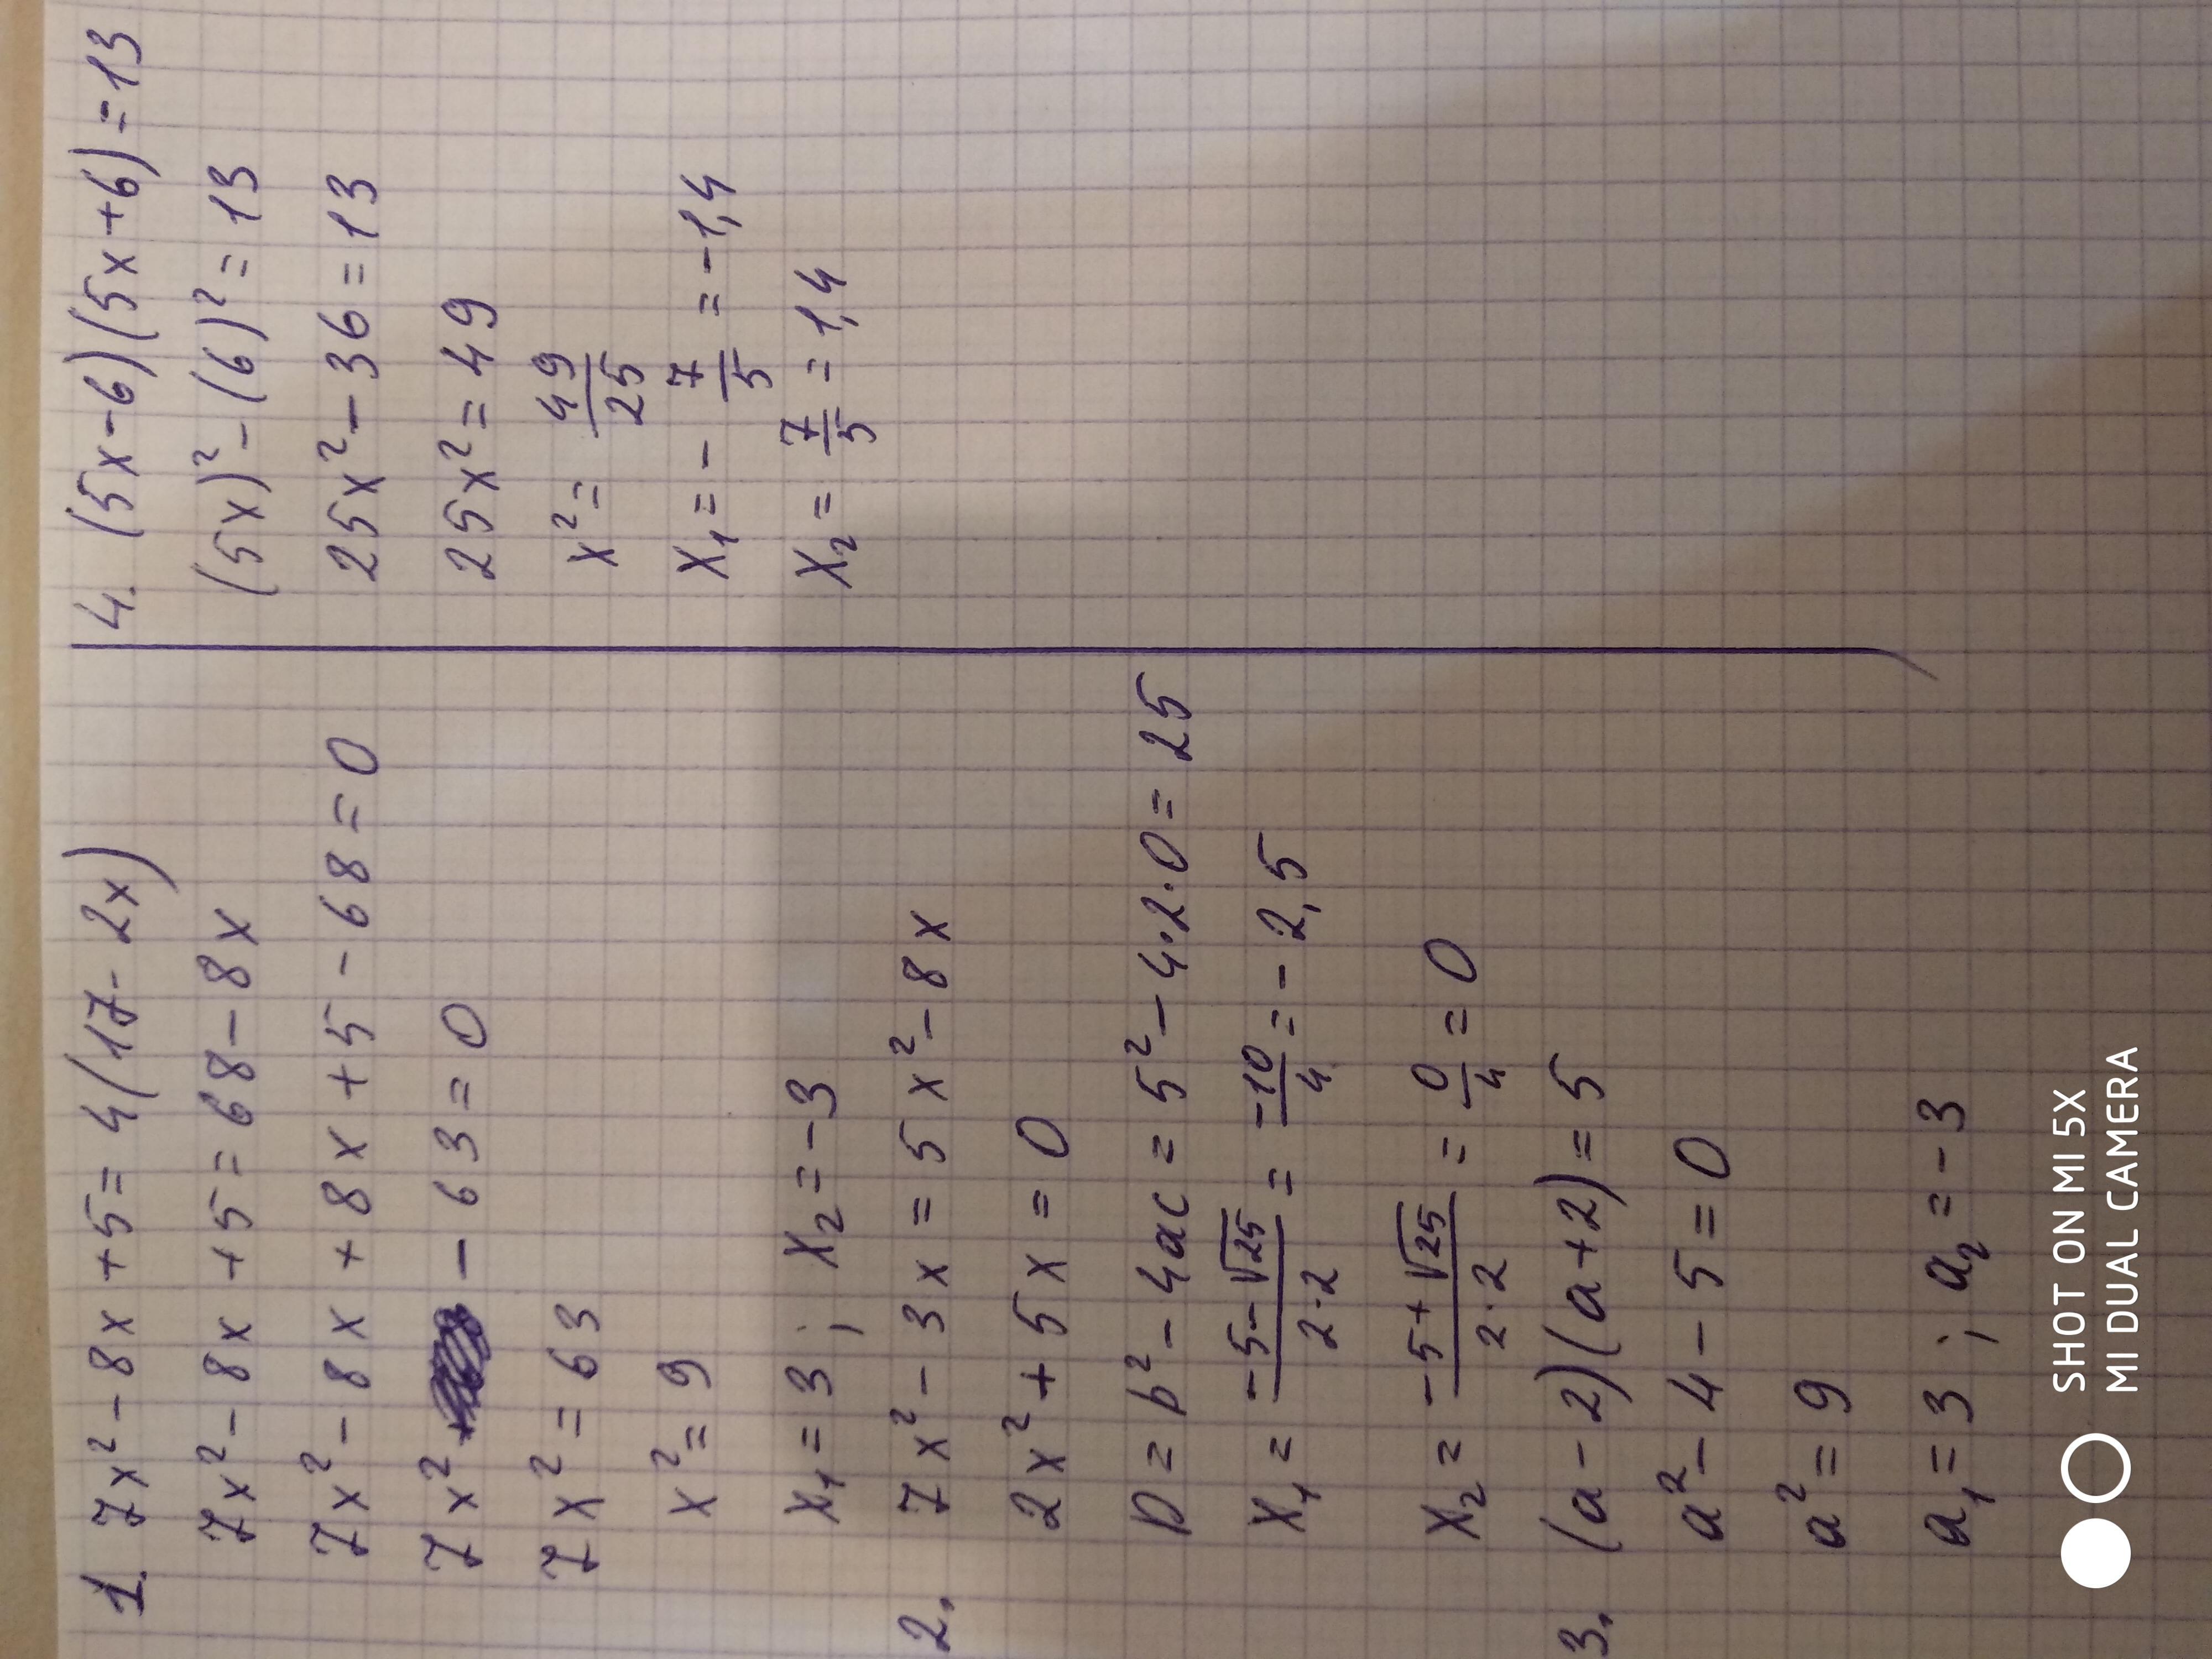 1. 7x² - 8x + 5 = 4(17 - 2x)
7x² - 8x + 5 = 68 - 8x
7x² - 8x + 8x + 5 - 68 = 0
7x² - 63 = 0
7x² = 63
x² = 9
x₁ = 3 ; x₂ = -3
2. 7x² - 3x = 5x² - 8x
2x² + 5x = 0
D = b² - 4ac = 5² - 4·2·0 = 25
x₁ = (-5 - √25)/(2·2) = -10/4 = -2,5
x₂ = (-5 + √25)/(2·2) = 0/4 = 0
3. (a - 2)(a + 2) = 5
a² - 4 - 5 = 0
a² = 9
a₁ = 3 ; a₂ = -3
4. (5x - 6)(5x + 6) = 13
(5x)² - (6)² = 13
25x² - 36 = 13
25x² = 49
x² = 49/25
x₁ = - 7/5 = -1,4
x₂ = 7/5 = 1,4
SHOT ON MI 5X
MI DUAL CAMERA